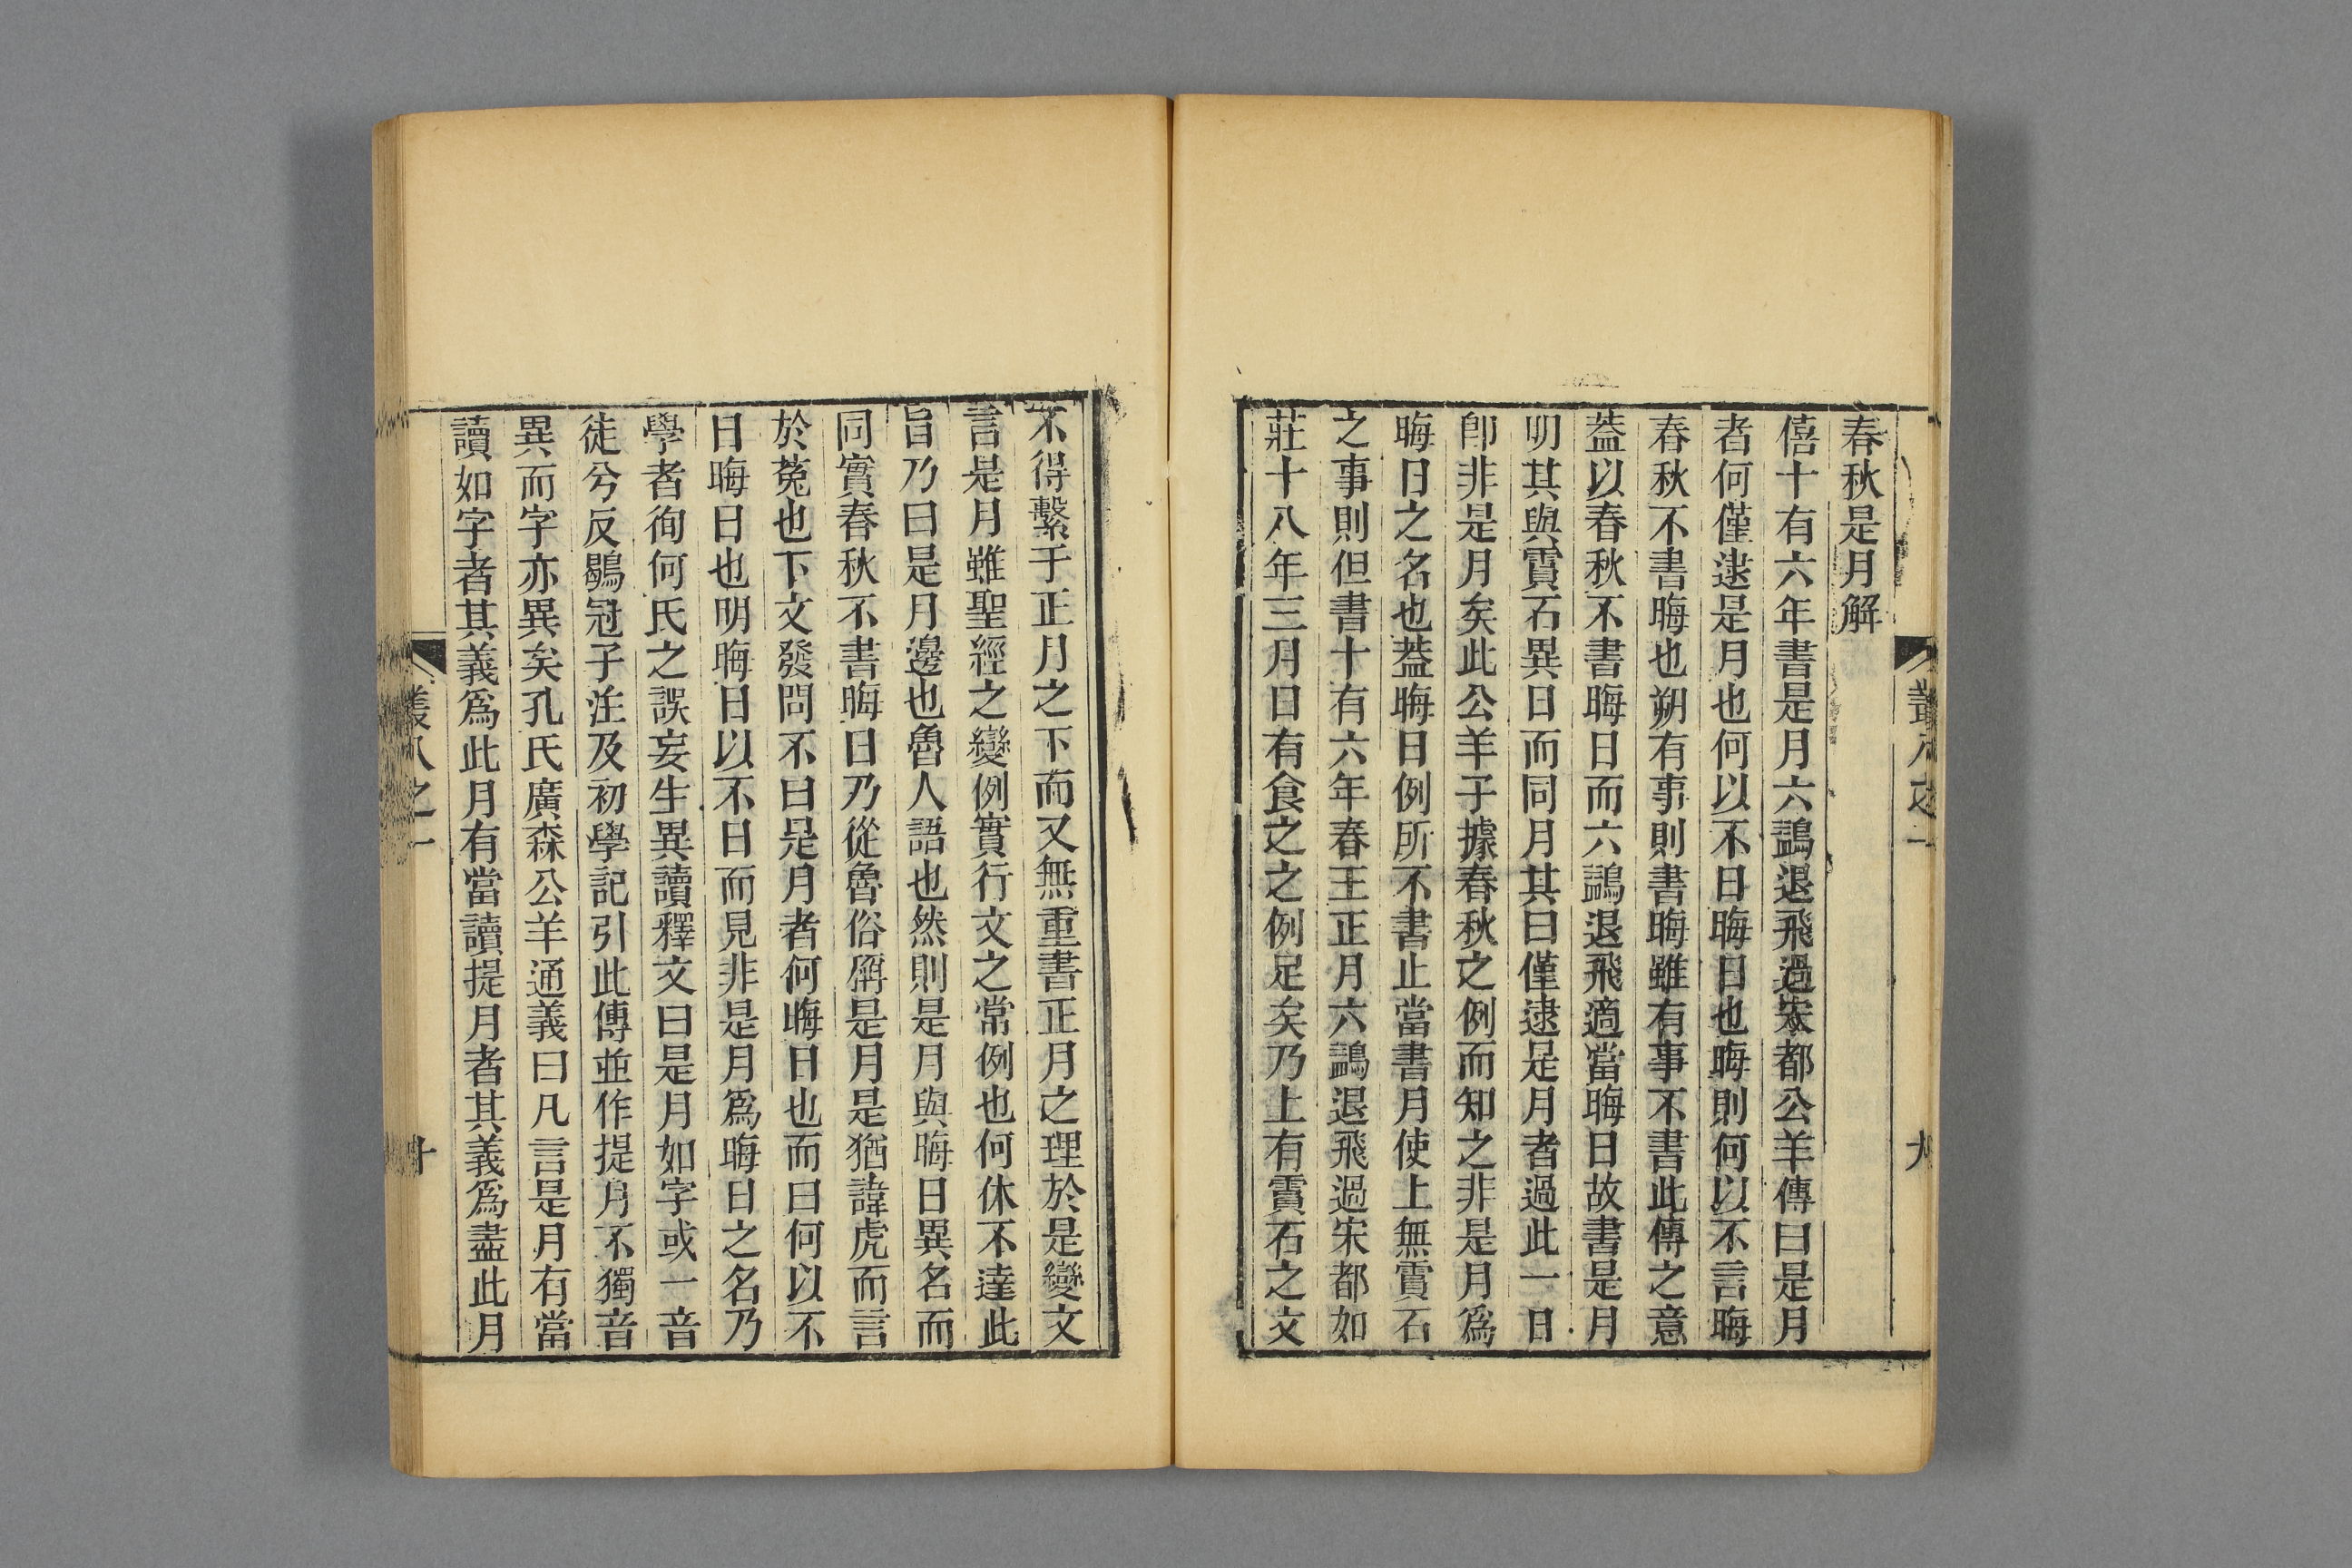 春秋是月解
僖十有六年書是月六鷁退飛過宋都公羊傳曰是月
者何僅逮是月也何以不日晦日也晦則何以不言晦
春秋不書晦也朔有事則書晦雖有事不書此傳之意
葢以春秋不書晦日而六鷁退飛適當晦日故書是月
明其與霣石異日而同月其曰僅逮是月者過此一日
卽非是月矣此公羊子據春秋之例而知之非是月爲
晦日之名也葢晦日例所不書止當書月使上無霣石
之事則但書十有六年春王正月六鷁退飛過宋都如
莊十八年三月日有食之之例足矣乃上有霣石之文
不得繫于正月之下而又無重書正月之理於是變文
言是月雖聖經之變例實行文之常例也何休不達此
旨乃曰是月邊也魯人語也然則是月與晦日異名而
同實春秋不書晦日乃從魯俗稱是月是猶諱虎而言
於菟也下文發問不曰是月者何晦日也而曰何以不
日晦日也明晦日以不日而見非是月爲晦日之名乃
學者徇何氏之誤妄生異讀釋文曰是月如字或一音
徒兮反鶡冠子注及初學記引此傳並作提月不獨音
異而字亦異矣孔氏廣森公羊通義曰凡言是月有當
讀如字者其義爲此月有當讀提月者其義爲盡此月
叢八之一
九
叢八之一
十